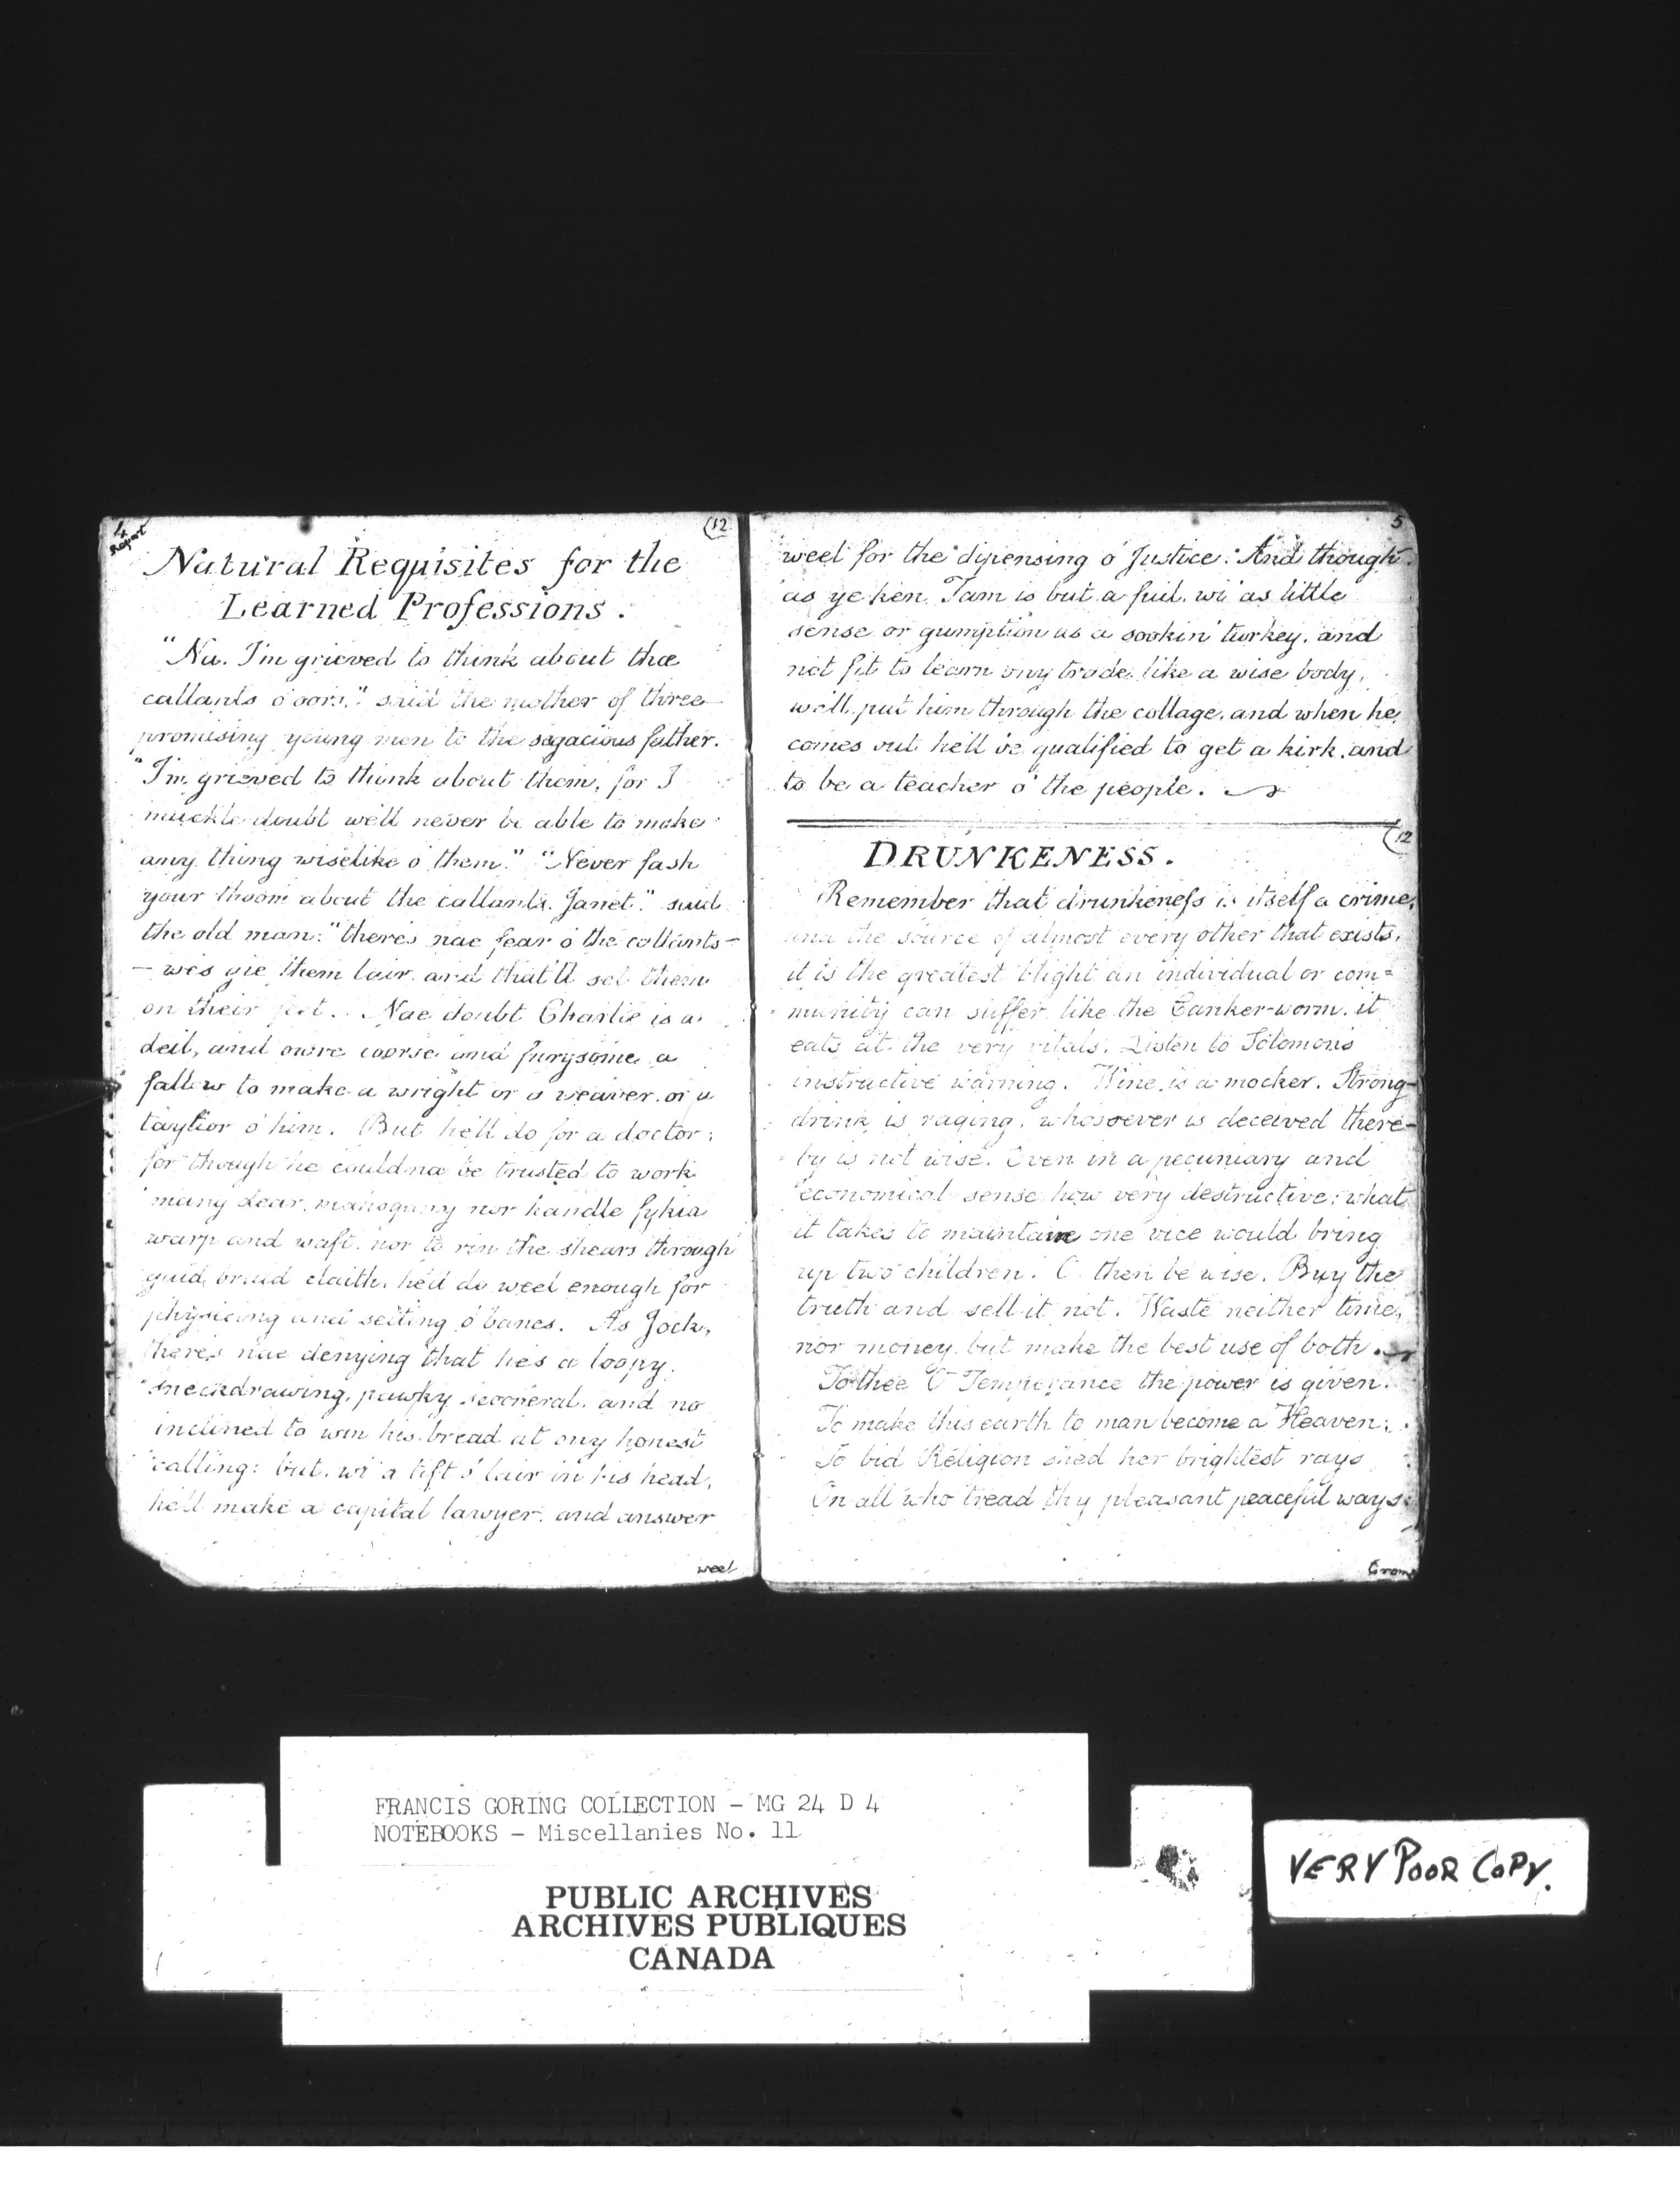 4
Report
(12
Natural Requisites for the
Learned Professions.
"Na. I'm grieved to think about thae
callants o' oors," said the mother of three
promising young men to the sagacious father.
"I'm grieved to think about them, for I
muckle doubt we'll never be able to make
any thing wiselike o' them." "Never fash
your thoom about the callants. Janet." said
the old man: "there's nae fear o' the callants—
— we's gie them lair. and that'll set them
on their feet. Nae doubt Charlie is a
deil, and owre coorse and furysome a
fallow to make a wright or a weaver, or a
taylior o' him. But he'll do for a doctor;
for though he couldna be trusted to work
mang dear, mahogany nor handle fykia
warp and waft, nor to rin the shears through
guid braid claith, he'd do weel enough for
physicing and setting o' banes. As Jock,
there's nae denying that he's a loopy,
sneckdrawing, pawky scooneral, and no
inclined to win his bread at ony honest
calling: but, wi' a lift o' lair in his head,
he'll make a capital lawyer. and answer
weel
5
weel for the dipensing o' Justice: And though
as ye ken, Tam is but a fuil. wi' as little
sense or gumption as a sookin' turkey, and
not fit to learn ony trade like a wise body,
we'll put him through the collage, and when he
comes out he'll be qualified to get a kirk, and
to be a teacher o' the people.
(12
DRUNKENESS.
Remember that drunkeness is itself a crime,
and the source of almost every other that exists,
it is the greatest blight an individual or com=
munity can suffer, like the Canker-worm, it
eats at the very vitals. Listen to Solomon's
instructive warning. Wine is a mocker. Strong-
drink is raging, whosoever is deceived there-
by is not wise. Even in a pecuniary and
economical sense how very destructive; what
it takes to maintain one vice would bring
up two children. O then be wise. Buy the
truth and sell it not. Waste neither time,
nor money, but make the best use of both.
To thee O Temperance the power is given.
To make this earth to man become a Heaven;
To bid Religion shed her brightest rays
On all who tread thy pleasant peaceful ways.
FRANCIS GORING COLLECTION - MG 24 D 4
NOTEBOOKS - Miscellanies No. 11
PUBLIC ARCHIVES
ARCHIVES PUBLIQUES
CANADA
VERY POOR COPY.